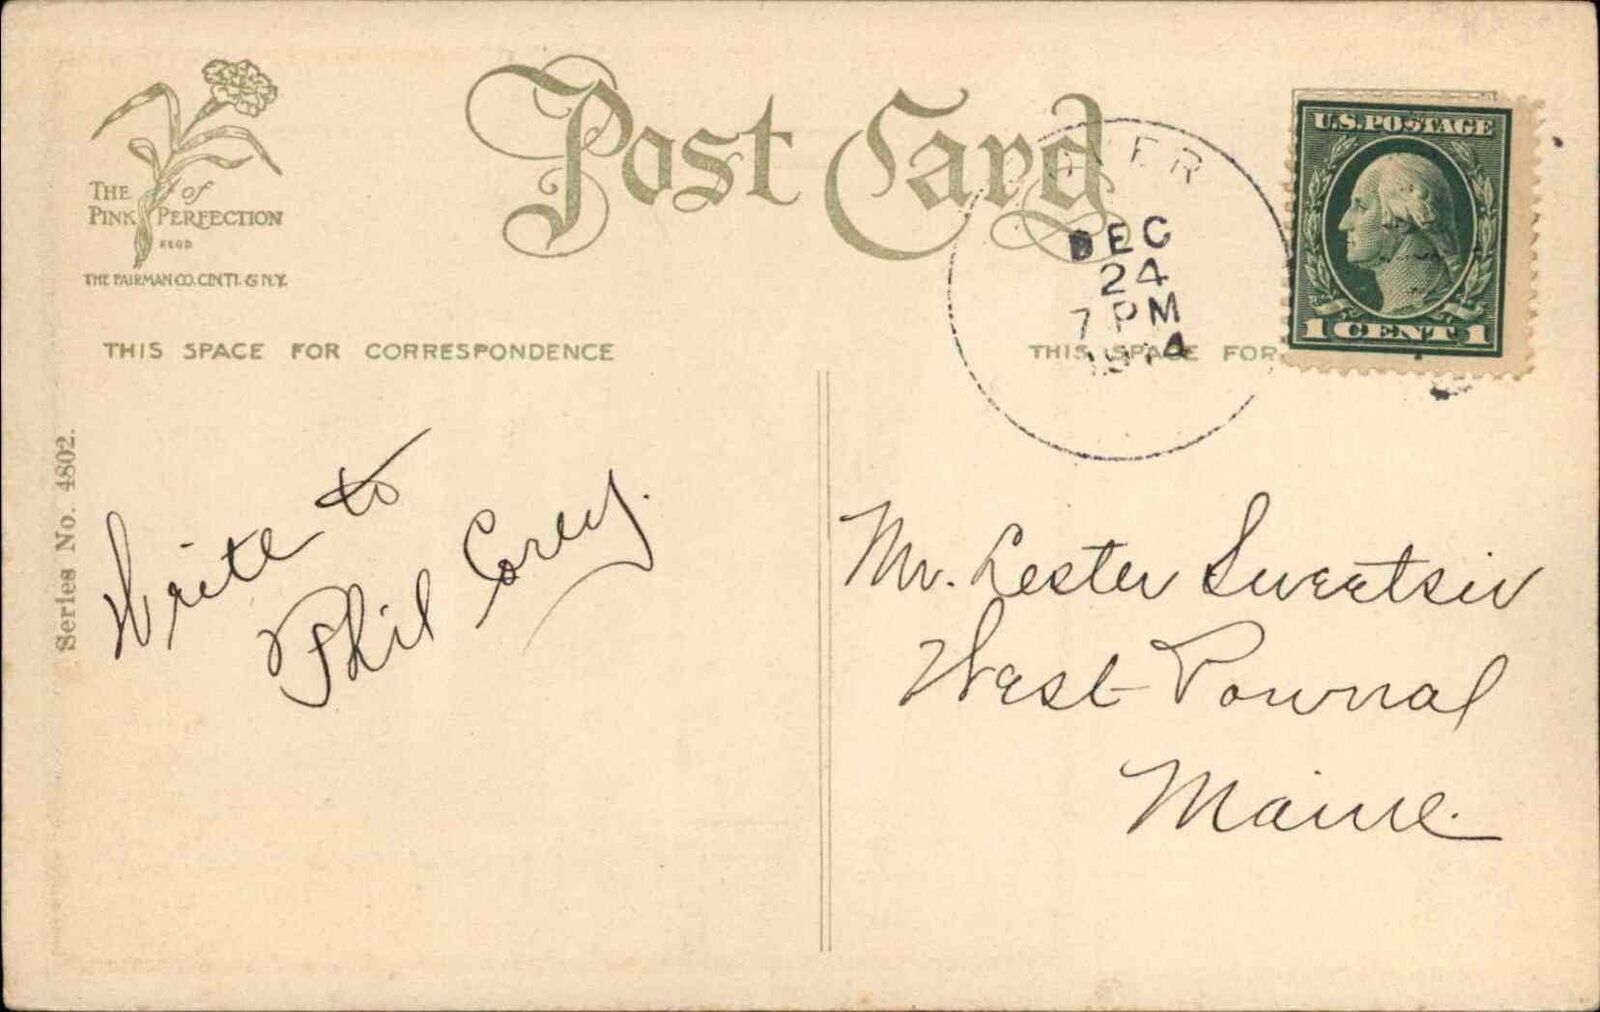 THE of
PINK PERFECTION
REGD
THE FAIRMAN CO. CIN'TI. & N.Y.
Post Card
DEC
24
7 PM
1914
U.S. POSTAGE
1 CENT 1
THIS SPACE FOR CORRESPONDENCE
THIS SPACE FOR
Series No. 4802.
Write to
Phil Corey.
Mr. Lester Sweetsir
West Pownal
Maine.